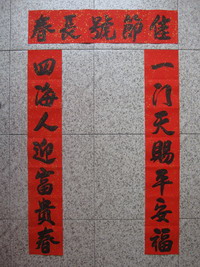 佳節號長春
一门天賜平安福
四海人迎富貴春